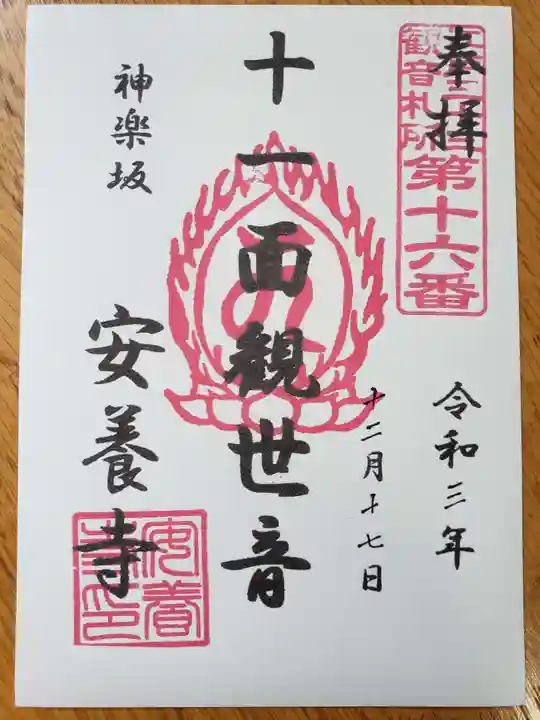 奉拝
観音札所
第十六番
令和三年
十二月十七日
十一面観世音
神楽坂
安養寺
安養
寺印